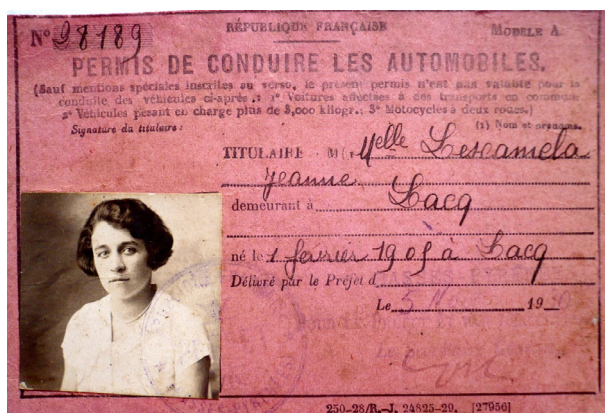 N° 98189
RÉPUBLIQUE FRANÇAISE
MODELE A
PERMIS DE CONDUIRE LES AUTOMOBILES.
(Sauf mentions spéciales inscrites au verso, le présent permis n'est pas valable pour la
conduite des véhicules ci-après : 1° Voitures affectées à des transports en commun
2° Véhicules pesant en charge plus de 3,000 kilogr.; 3° Motocycles à deux roues.)
Signature du titulaire :
(1) Nom et prénoms.
TITULAIRE M(1) Melle
Jeanne
demeurant à Lacq
né le 1 février 1905 à Lacq
Délivré par le Préfet d
Le 5 19
250-28/R.-J. 24825-29. [27956]